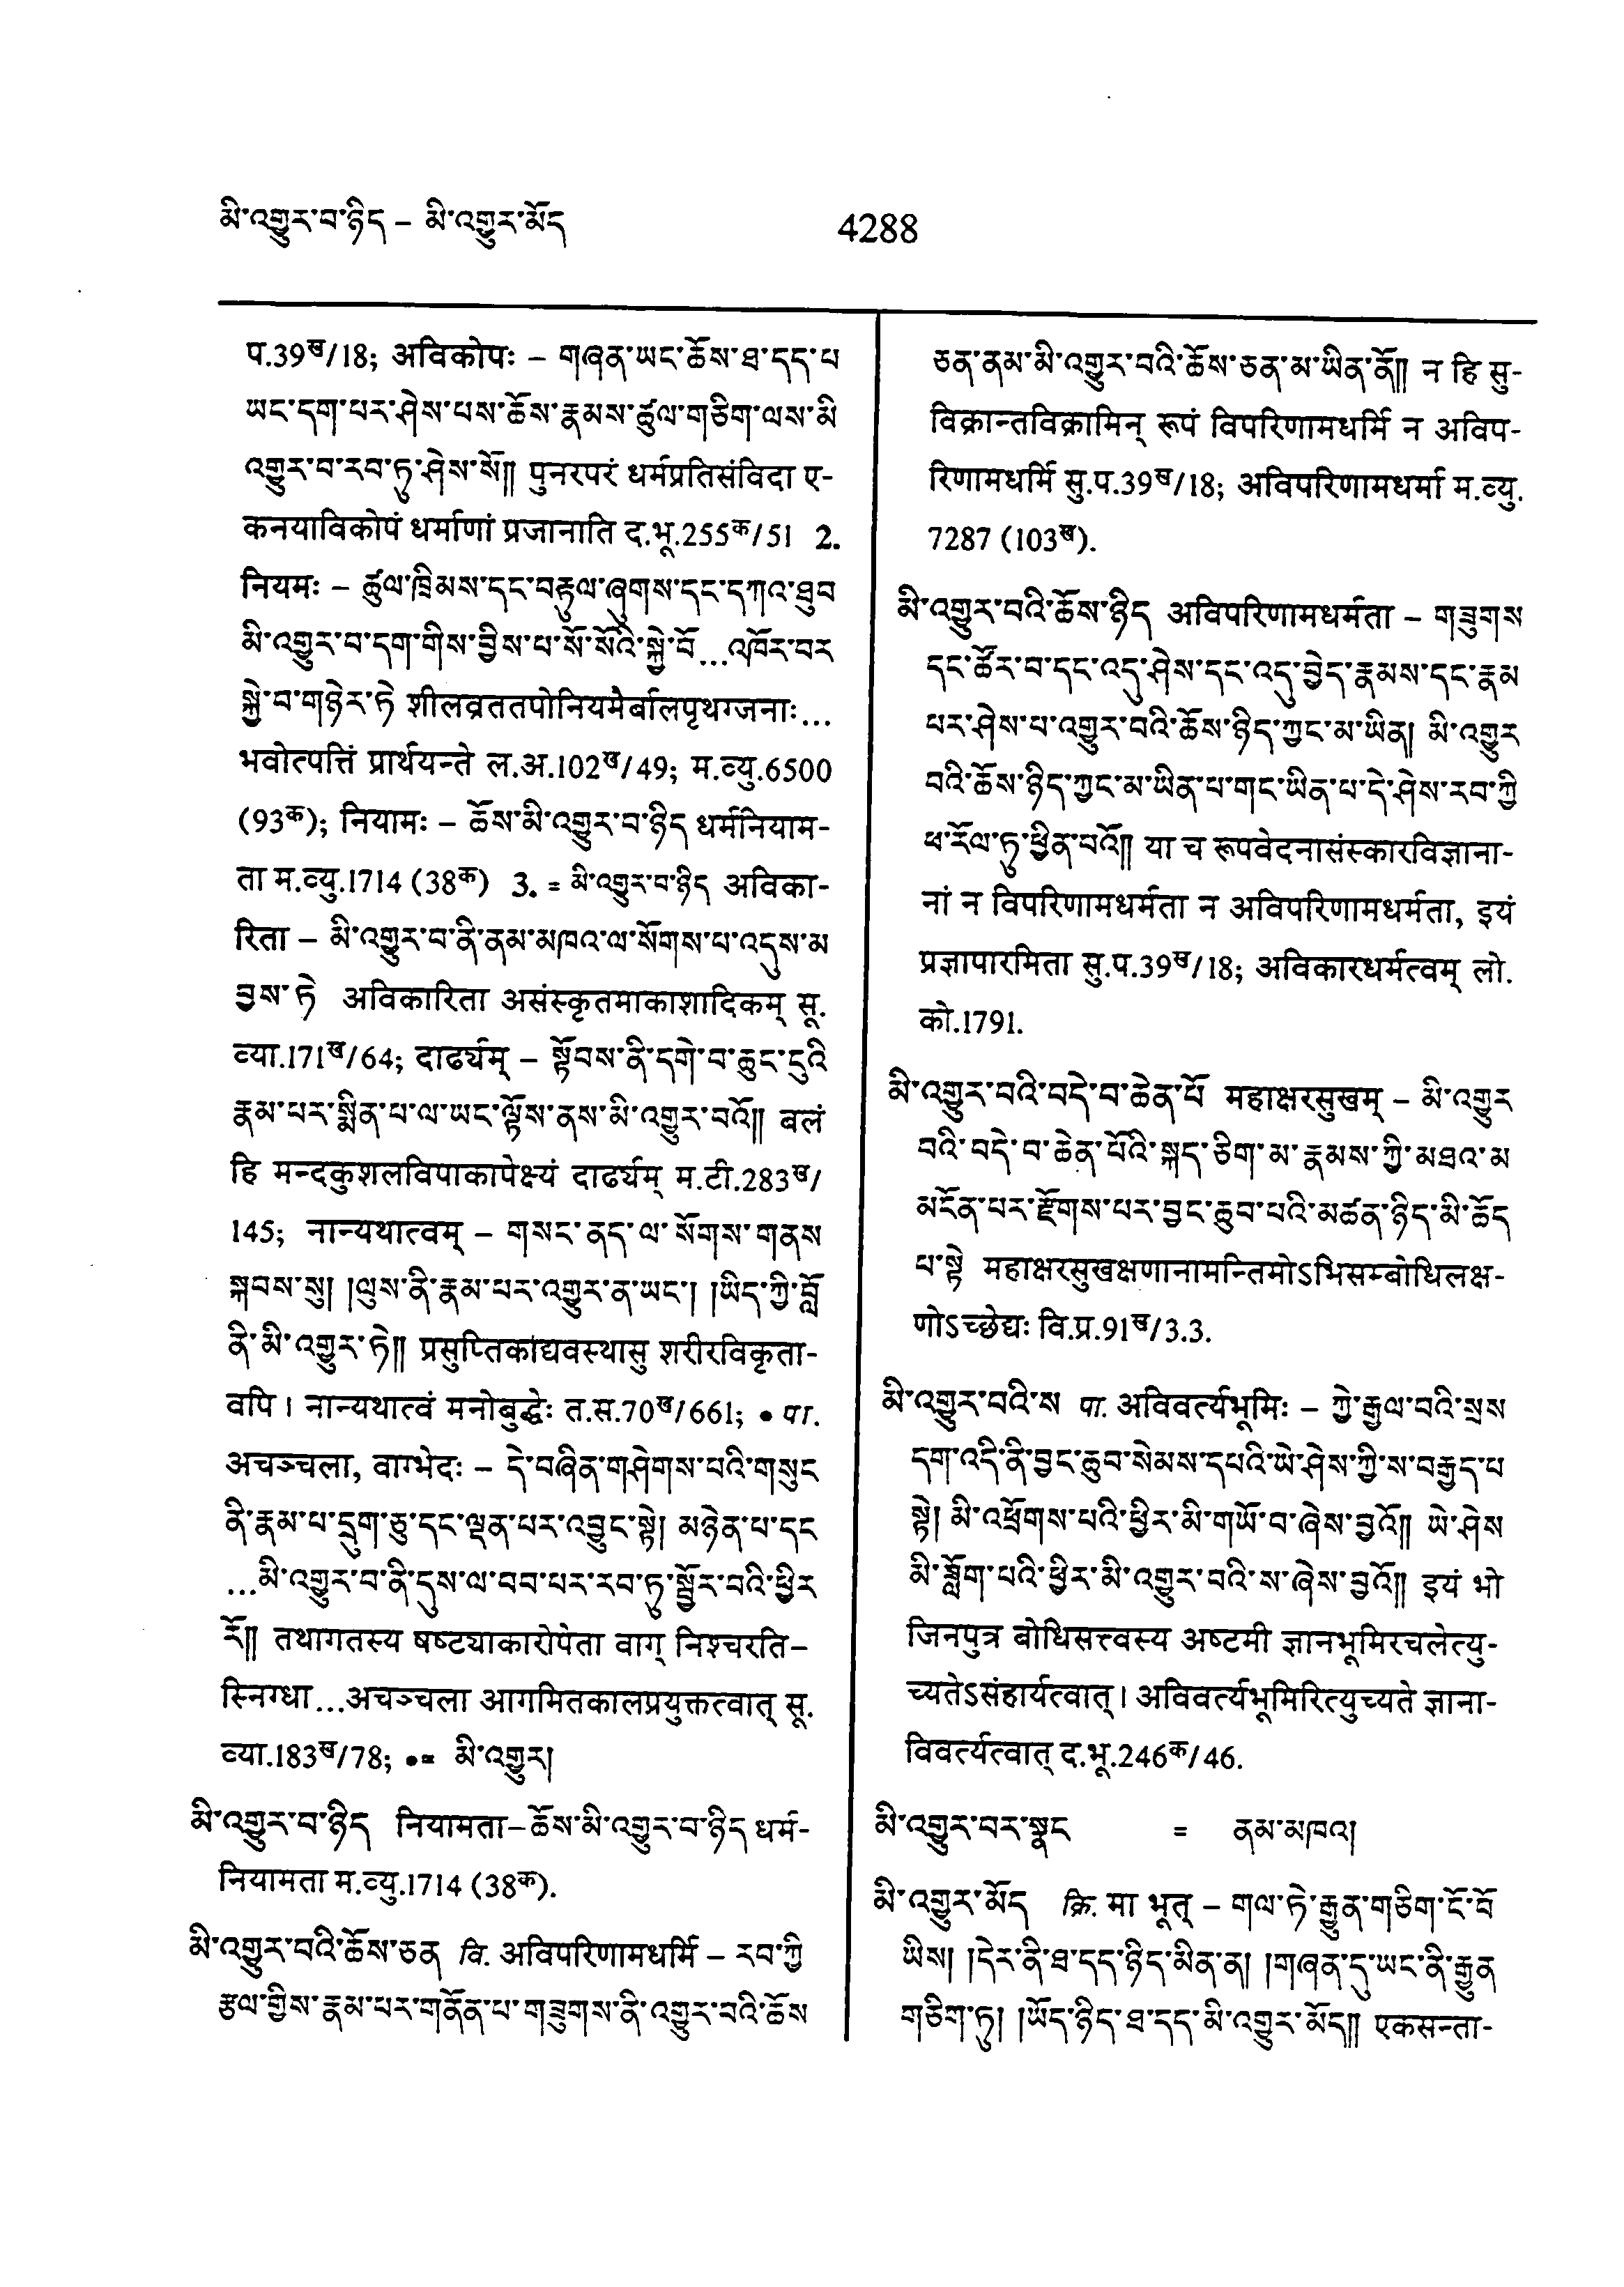 མི་འགྱུར་བ་ཉིད – མི་འགྱུར་མོད
4288
प.39ख/18; अविकोपः – གཞན་ཡང་ཆོས་ཐ་དད་པ
ཡང་དག་པར་ཤེས་པས་ཆོས་རྣམས་ཚུལ་གཅིག་ལས་མི
འགྱུར་བ་རབ་ཏུ་ཤེས་སོ།། पुनरपरं धर्मप्रतिसंविदा ए-
कनयाविकोपं धर्माणां प्रजानाति द.भू.255क/51 2.
नियमः – ཚུལ་ཁྲིམས་དང་བརྟུལ་ཞུགས་དང་དཀའ་ཐུབ
མི་འགྱུར་བ་དག་གིས་བྱིས་པ་སོ་སོའི་སྐྱེ་བོ...འཁོར་བར
སྐྱེ་བ་གཉེར་ཏེ शीलव्रततपोनियमैर्बालपृथग्जनाः...
भवोत्पत्तिं प्रार्थयन्ते ल.अ.102ख/49; म.व्यु.6500
(93क); नियामः – ཆོས་མི་འགྱུར་བ་ཉིད धर्मनियाम-
ता म.व्यु.1714 (38क) 3. = མི་འགྱུར་བ་ཉིད अविका-
रिता – མི་འགྱུར་བ་ནི་ནམ་མཁའ་ལ་སོགས་པ་འདུས་མ
བྱས་ཏེ अविकारिता असंस्कृतमाकाशादिकम् सू.
व्या.171ख/64; दार्ढ्यम् – སྟོབས་ནི་དགེ་བ་ཆུང་ངུའི
རྣམ་པར་སྨིན་པ་ལ་ཡང་ལྟོས་ནས་མི་འགྱུར་བའོ།། बलं
हि मन्दकुशलविपाकापेक्ष्यं दार्ढ्यम् म.टी.283ख/
145; नान्यथात्वम् – གསང་ནད་ལ་སོགས་གནས
སྐབས་སུ། །ལུས་ནི་རྣམ་པར་འགྱུར་ན་ཡང་། །ཡིད་ཀྱི་བློ
ནི་མི་འགྱུར་ཏེ།། प्रसुप्तिकाद्यवस्थासु शरीरविकृता-
वपि । नान्यथात्वं मनोबुद्धेः त.स.70ख/661; • पा.
अचञ्चला, वाग्भेदः – དེ་བཞིན་གཤེགས་པའི་གསུང
ནི་རྣམ་པ་དྲུག་ཅུ་དང་ལྡན་པར་འབྱུང་སྟེ། མཉེན་པ་དང
...མི་འགྱུར་བ་ནི་དུས་ལ་བབ་པར་རབ་ཏུ་སྦྱོར་བའི་ཕྱིར
རོ།། तथागतस्य षष्ट्याकारोपेता वाग् निश्चरति–
स्निग्धा...अचञ्चला आगमितकालप्रयुक्तत्वात् सू.
व्या.183ख/78; •= མི་འགྱུར།
མི་འགྱུར་བ་ཉིད नियामता–ཆོས་མི་འགྱུར་བ་ཉིད धर्म-
नियामता म.व्यु.1714 (38क).
མི་འགྱུར་བའི་ཆོས་ཅན वि. अविपरिणामधर्मि – རབ་ཀྱི
རྩལ་གྱིས་རྣམ་པར་གནོན་པ་གཟུགས་ནི་འགྱུར་བའི་ཆོས
ཅན་ནམ་མི་འགྱུར་བའི་ཆོས་ཅན་མ་ཡིན་ནོ།། न हि सु-
विक्रान्तविक्रामिन् रूपं विपरिणामधर्मि न अविप-
रिणामधर्मि सु.प.39ख/18; अविपरिणामधर्मा म.व्यु.
7287 (103ख).
མི་འགྱུར་བའི་ཆོས་ཉིད अविपरिणामधर्मता – གཟུགས
དང་ཚོར་བ་དང་འདུ་ཤེས་དང་འདུ་བྱེད་རྣམས་དང་རྣམ
པར་ཤེས་པ་འགྱུར་བའི་ཆོས་ཉིད་ཀྱང་མ་ཡིན། མི་འགྱུར
བའི་ཆོས་ཉིད་ཀྱང་མ་ཡིན་པ་གང་ཡིན་པ་དེ་ཤེས་རབ་ཀྱི
ཕ་རོལ་ཏུ་ཕྱིན་པའོ།། या च रूपवेदनासंस्कारविज्ञाना-
नां न विपरिणामधर्मता न अविपरिणामधर्मता, इयं
प्रज्ञापारमिता सु.प.39ख/18; अविकारधर्मत्वम् लो.
को.1791.
མི་འགྱུར་བའི་བདེ་བ་ཆེན་པོ महाक्षरसुखम् – མི་འགྱུར
བའི་བདེ་བ་ཆེན་པོའི་སྐད་ཅིག་མ་རྣམས་ཀྱི་མཐའ་མ
མངོན་པར་རྫོགས་པར་བྱང་ཆུབ་པའི་མཚན་ཉིད་མི་ཆོད
པ་སྟེ महाक्षरसुखक्षणानामन्तिमोऽभिसम्बोधिलक्ष-
णोऽच्छेद्यः वि.प्र.91ख/3.3.
མི་འགྱུར་བའི་ས पा. अविवर्त्यभूमिः – ཀྱེ་རྒྱལ་བའི་སྲས
དག་འདི་ནི་བྱང་ཆུབ་སེམས་དཔའི་ཡེ་ཤེས་ཀྱི་ས་བརྒྱད་པ
སྟེ། མི་འཕྲོགས་པའི་ཕྱིར་མི་གཡོ་བ་ཞེས་བྱའོ།། ཡེ་ཤེས
མི་ཟློག་པའི་ཕྱིར་མི་འགྱུར་བའི་ས་ཞེས་བྱའོ།། इयं भो
जिनपुत्र बोधिसत्त्वस्य अष्टमी ज्ञानभूमिरचलेत्यु-
च्यतेऽसंहार्यत्वात् । अविवर्त्यभूमिरित्युच्यते ज्ञाना-
विवर्त्यत्वात् द.भू.246क/46.
མི་འགྱུར་བར་སྣང = ནམ་མཁའ།
མི་འགྱུར་མོད क्रि. मा भूत् – གལ་ཏེ་རྒྱུན་གཅིག་ངོ་བོ
ཡིས། །དེར་ནི་ཐ་དད་ཉིད་མིན་ན། །གཞན་དུ་ཡང་ནི་རྒྱུན
གཅིག་ཏུ། །ཡོད་ཉིད་ཐ་དད་མི་འགྱུར་མོད།། एकसन्ता-